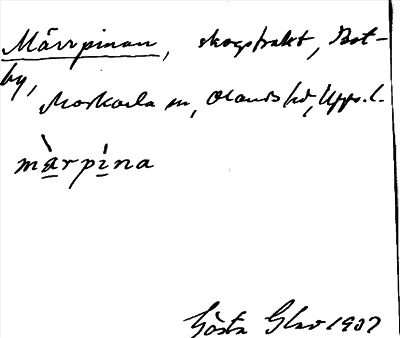 Märrpinan, skogstrakt, Bol-
by,
Morkarla sn, Olands hd, Upps. l.
màrpìna
Gösta Glas 1907